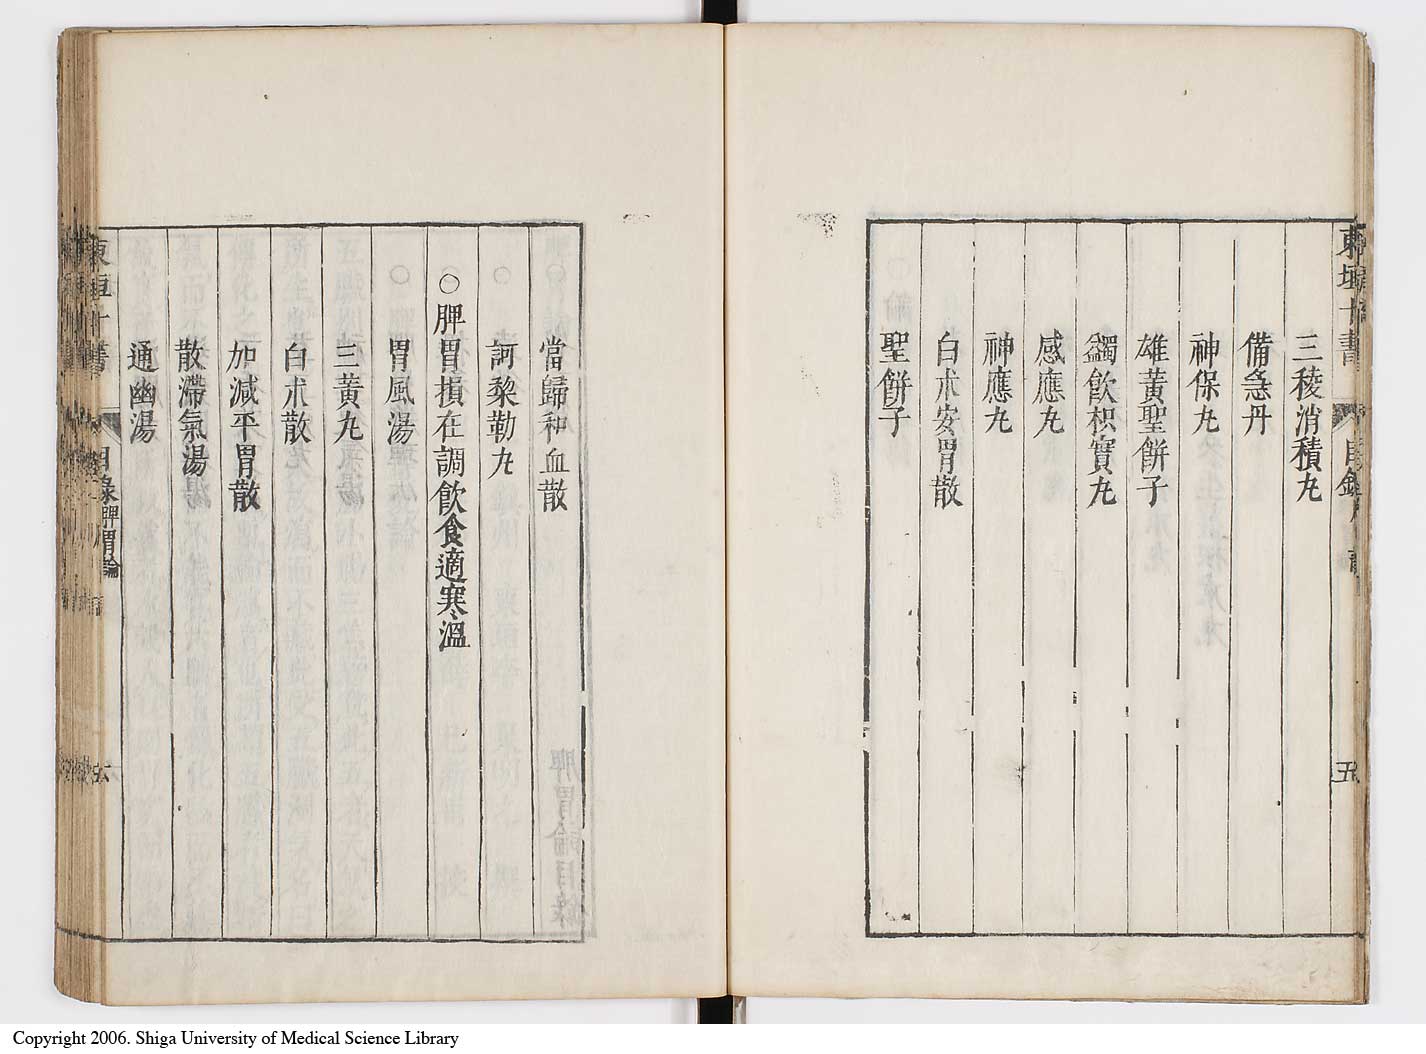 東垣十書
五
三稜消積丸
備急丹
神保丸
雄黃聖餅子
蠲飲枳實丸
感應丸
神應丸
白朮安胃散
聖餅子
當歸和血散
訶黎勒丸
○脾胃損在調飲食適寒溫
胃風湯
三黃丸
白朮散
加減平胃散
散滯氣湯
通幽湯
東垣十書
目錄脾胃論
Copyright 2006. Shiga University of Medical Science Library